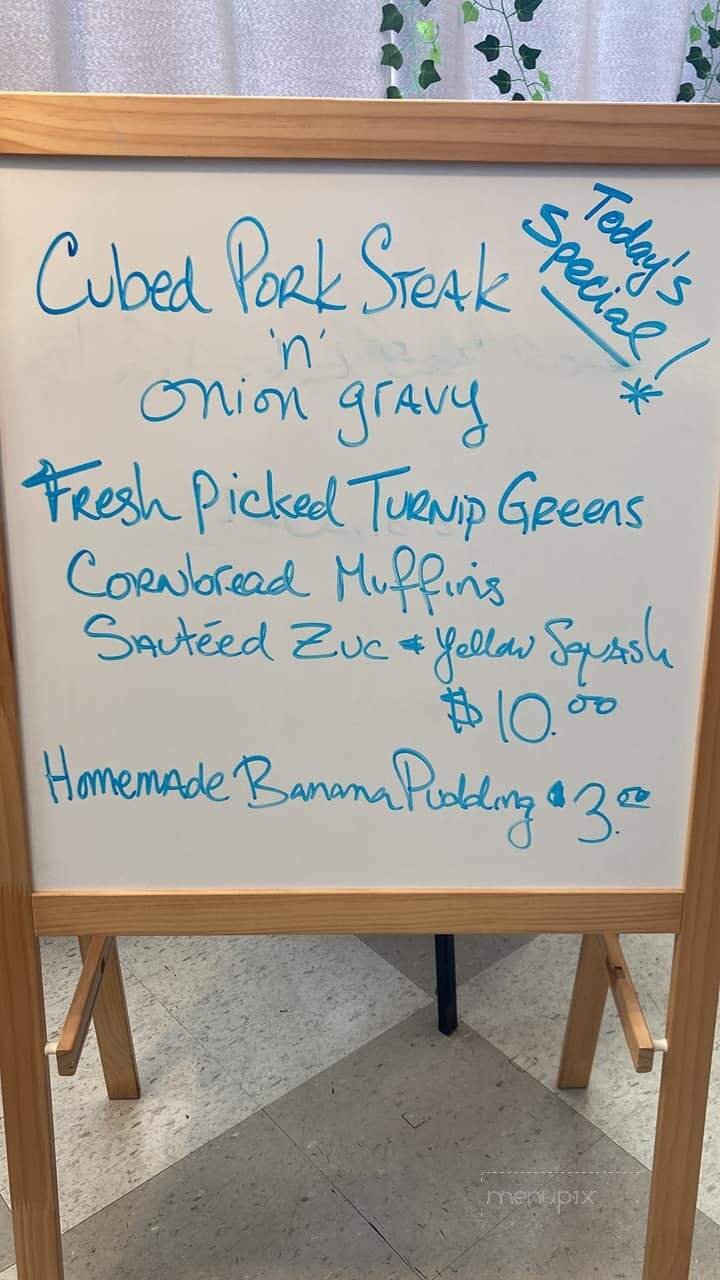 Today's
Special!
*
Cubed Pork Steak
'n'
onion gravy
Fresh Picked Turnip Greens
Cornbread Muffins
Sautéed Zuc & Yellow Squash
$10.00
Homemade Banana Pudding $3.00
menupix